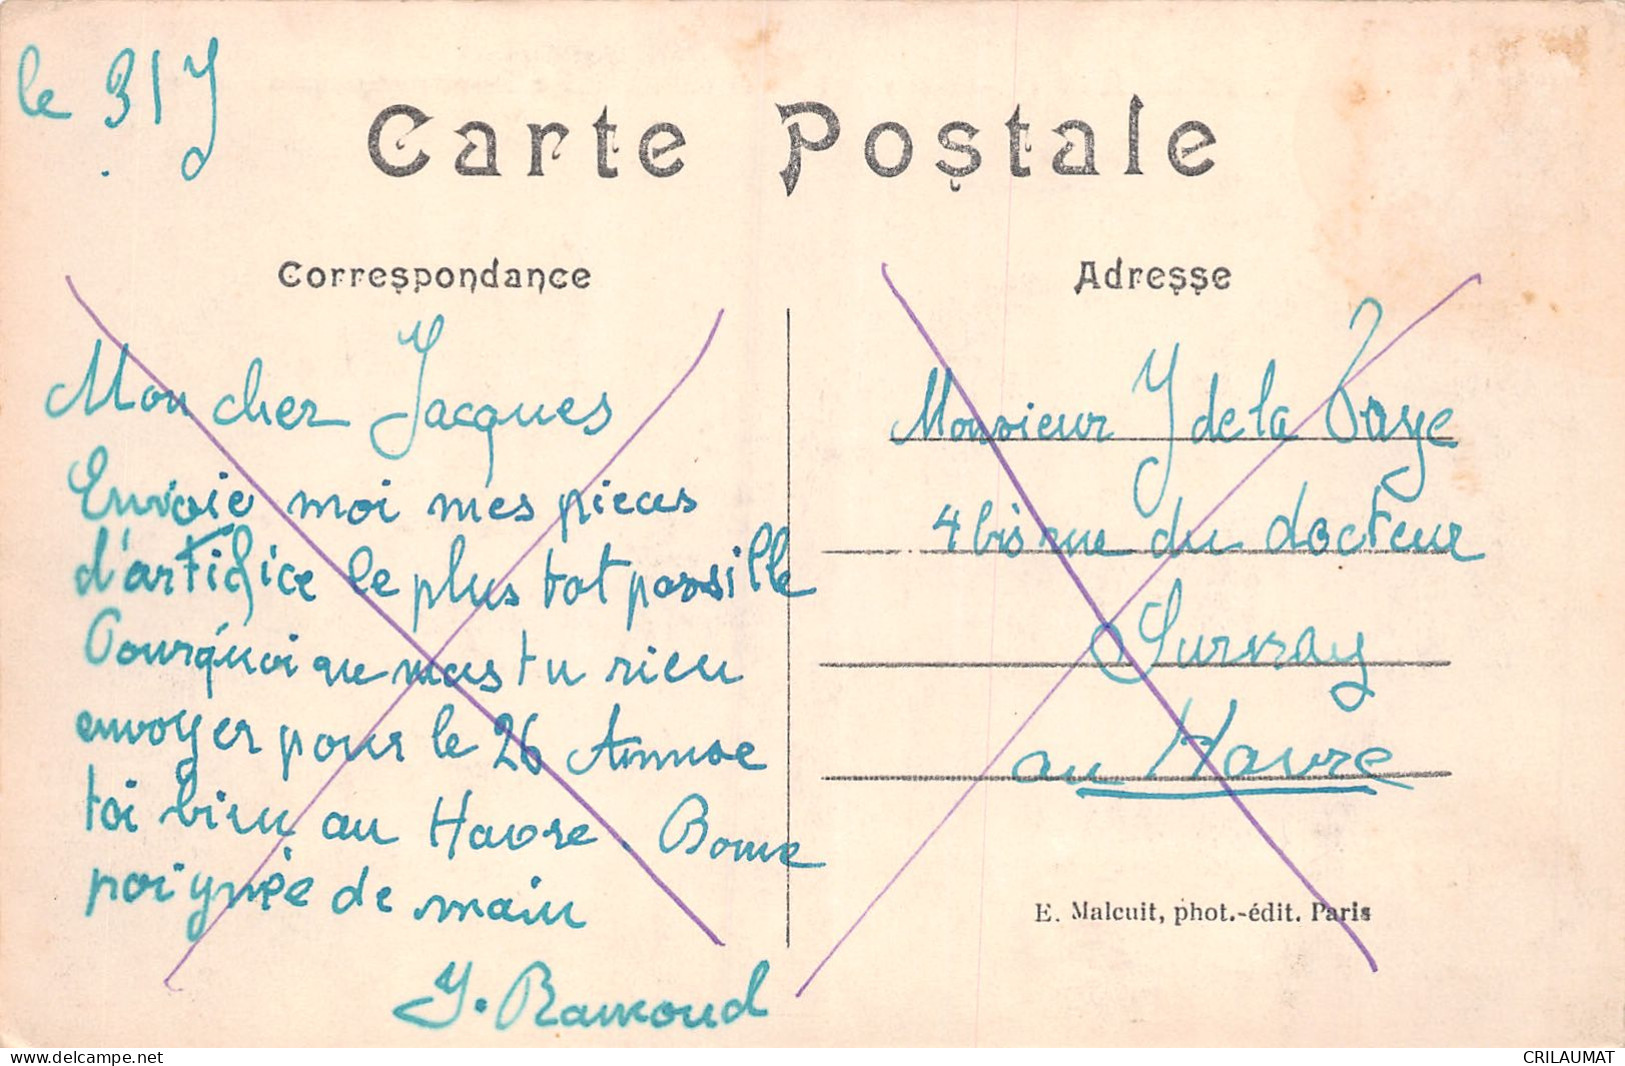 le 31 J
Carte Postale
Correspondance
Mon cher Jacques
Envoie moi mes pieces
d'artifice le plus tot possible
Pourquoi ne m'as tu rien
envoyer pour le 26 Amuse
toi bien au Havre. Bonne
poignée de main
J. Ramond
Adresse
Monsieur J de la Faye
4 bis rue du docteur
au Havre
E. Malcuit, phot.-édit. Paris
delcampe.net
CRILAUMAT